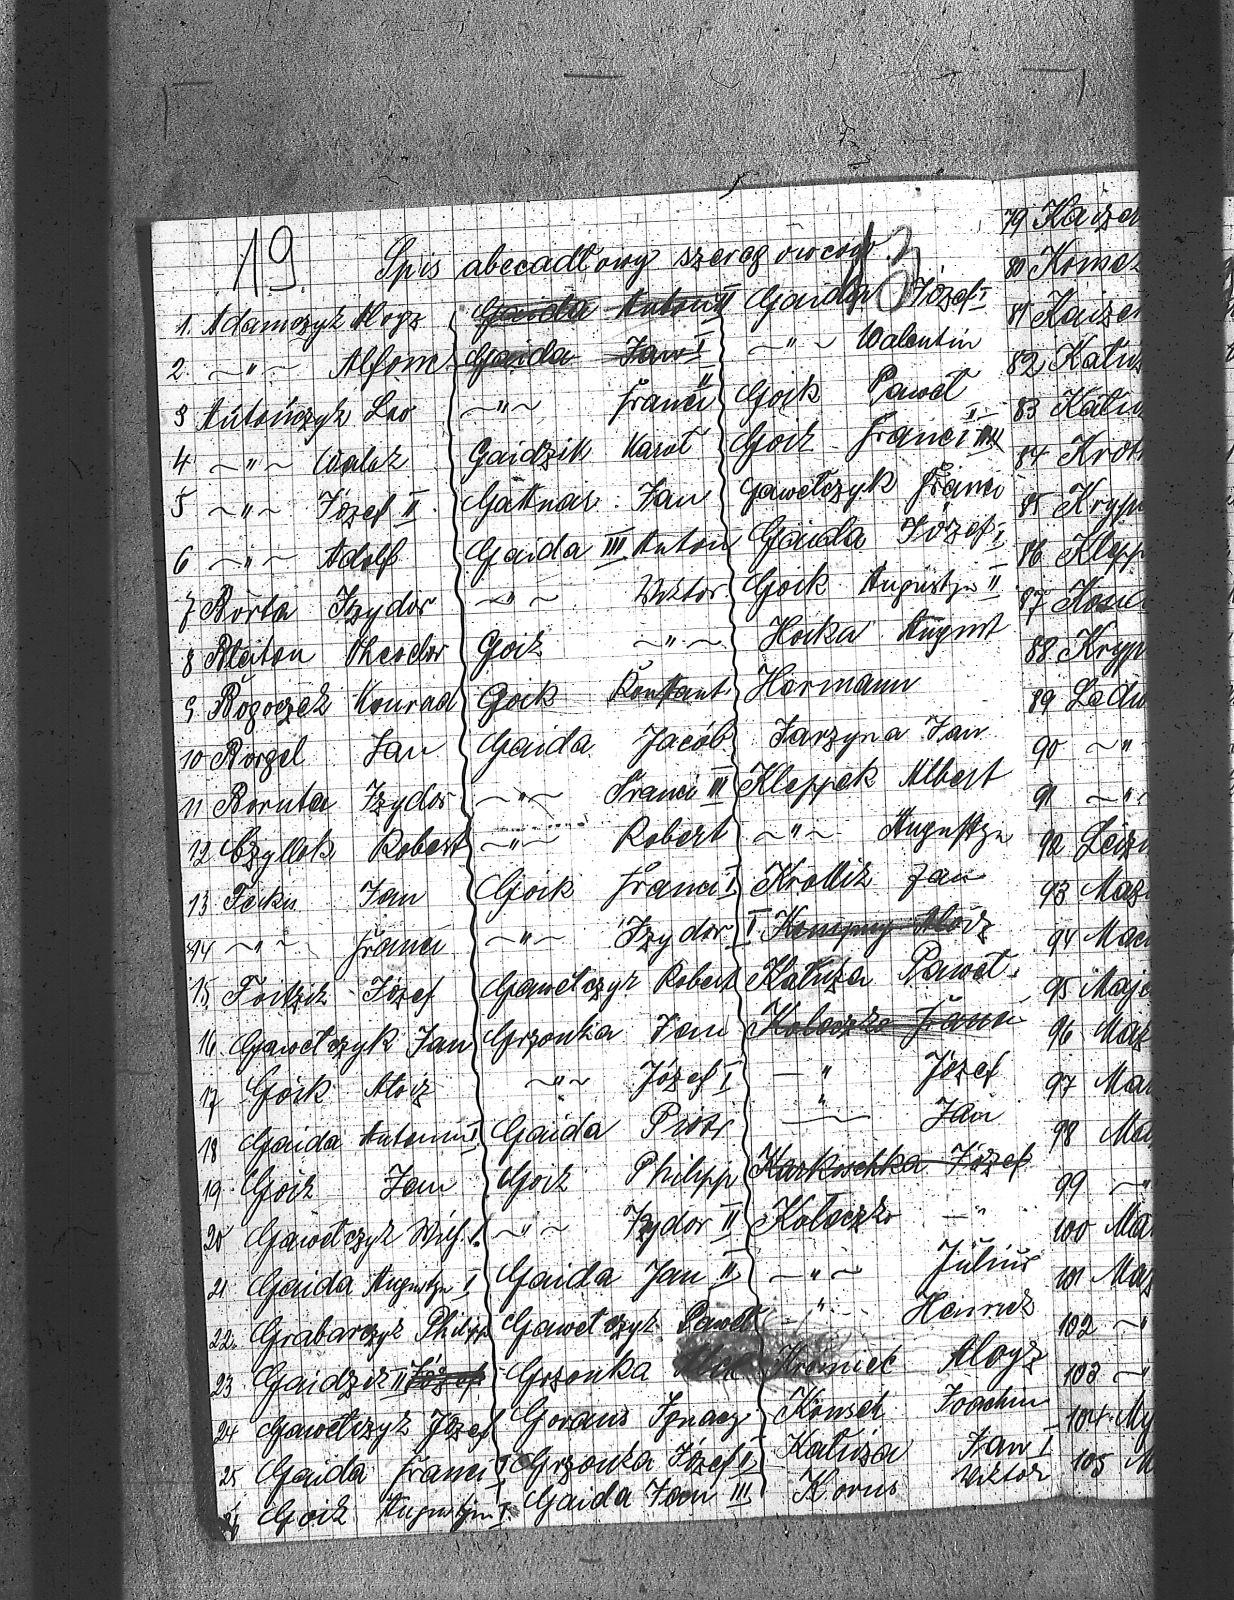 19.
13
Spis abecadłowy szeregowców
1. Adamczyk Alojz
2. -"- Alfons
3 Antończyk Leo
4. -"- Walek
5 -"- Józef II
6 -"- Adolf
7 Borta Izydor
8 Theodor
9 Bogoczek Konrad
10 Borgel Jan
11 Boruta Izydor
12 Czyllok Robert
13 Jan
14 -"- Franci
15. Józef
16. Gawełczyk Jan
17 Goik Aloiz
18 Gaida Antonin I
19. Goik Jan
20 Gawełczyk Wilh. I.
21 Gaida Augustyn I
22. Grabarczyk Philipp
23 Gaidzik II Józef
24 Gawełczyk Józef
25 Gaida Franci I
26 Goik Augustyn I.
Gaida Anton II
Gaida Jan I
-"- Franci II
Gaidzik Karol
Gattnar Jan
Gaida III Anton
-"- Wiktor
Goik -"-
Goik Konstant
Gaida Jacób
-"- Franci III
-"- Robert
Goik Franci I
-"- Izydor I
Gawełczyk Robert
Grzonka Jan
-"- Józef I
Gaida Piotr
Goik Philipp
-"- Izydor II
Gaida Jan II
Gawełczyk Paweł
Grzonka
Gorauš Ignacy
Grzonka Józef II
Gaida Jan III
Gaida Józef I
-"- Valentin
Goik Paweł
Goik Franci II
Gawełczyk Franci
Gaida Józef I
Goik Augustyn II
Hoika August
Hermann
Jarzyna Jan
Kleppek Albert
-"- Augustyn
Krollik Jan
Kempny Aloiz
Kałuża Paweł
Kołoczko Franci
-"- Józef
-"- Jan
Karkoschka Józef
Kołoczko -"-
-"- Julius
-"- Henrick
Kremiec Alojz
Konsek Joachim
Kałuża Jan I
Korus Wiktor
79 Kaizer
80
81 Kaizer
82 Kałuż
83 Kałuż
84 Krot
85 Kryp
86 Klepp
87
88 Kryp
89 Ledw
90 -"-
91 -"-
92
93 Maz
94 Mac
95 Maj
96 Maz
97 Ma
98 Ma
99 -"-
100 Ma
101 Maz
102 -"-
103 -"-
104. My
105 M